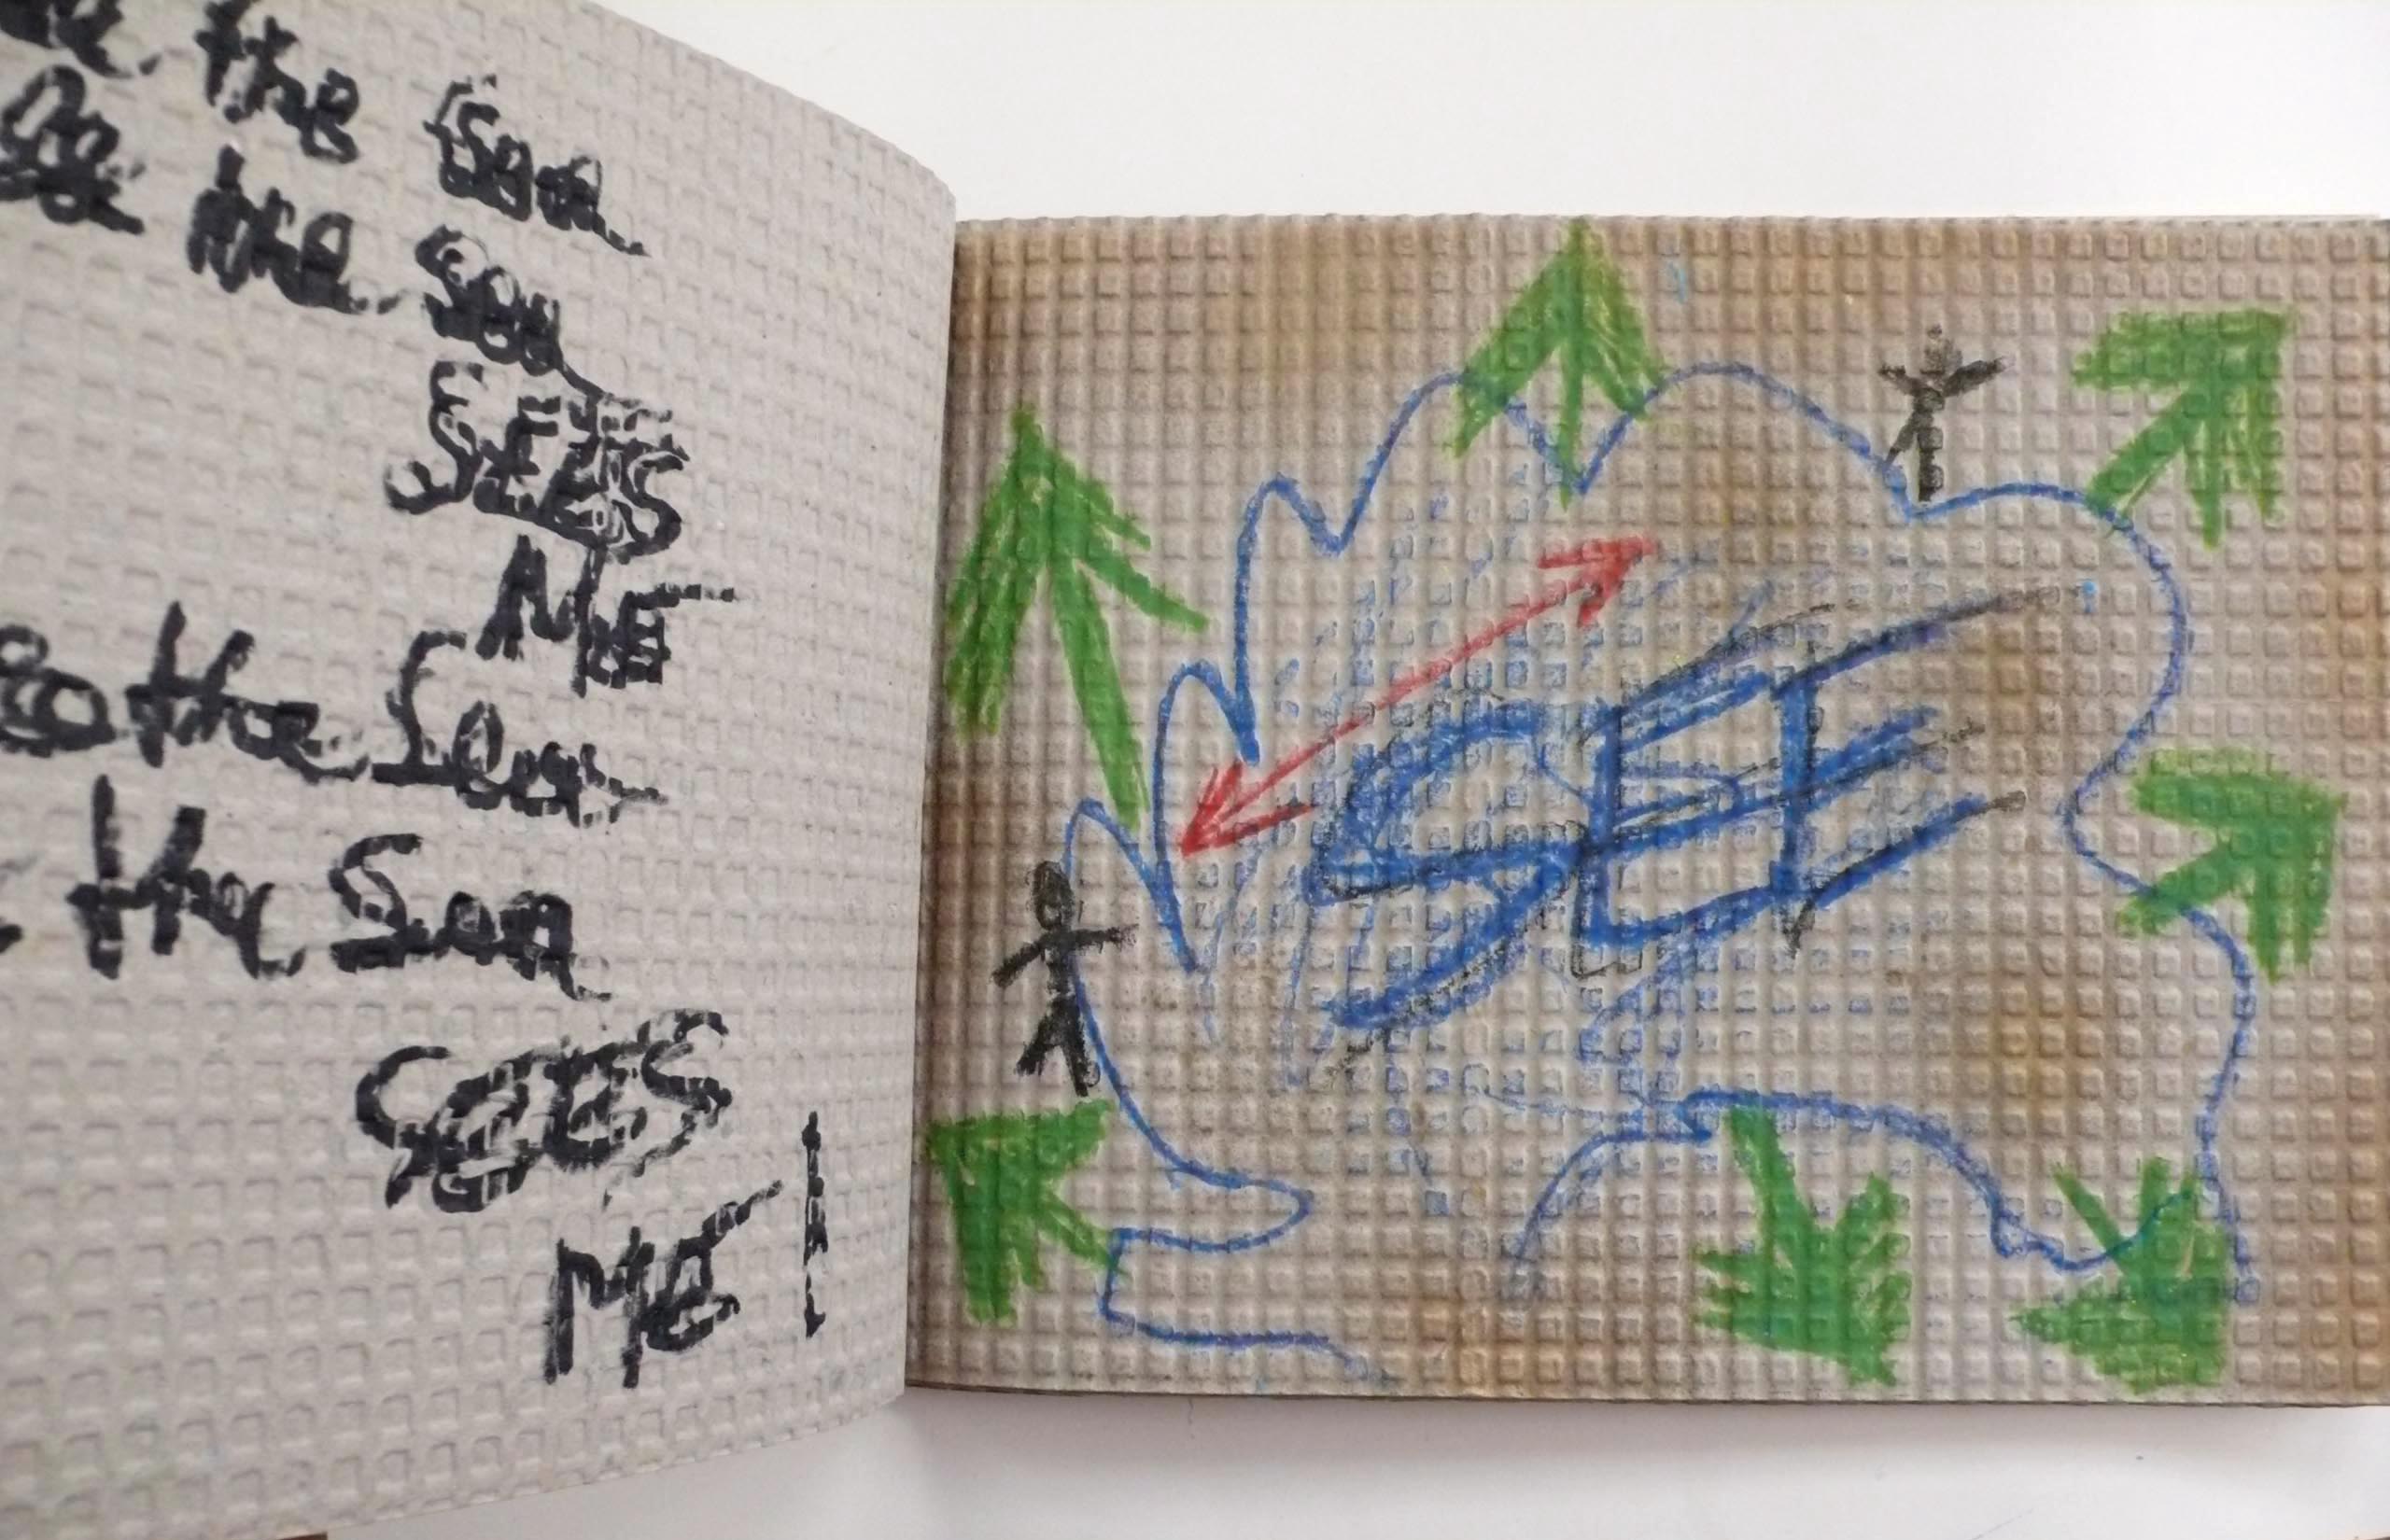 the Sea
the Sea
SEES
ME
the Sea
the Sea
SEES
ME!
SEE